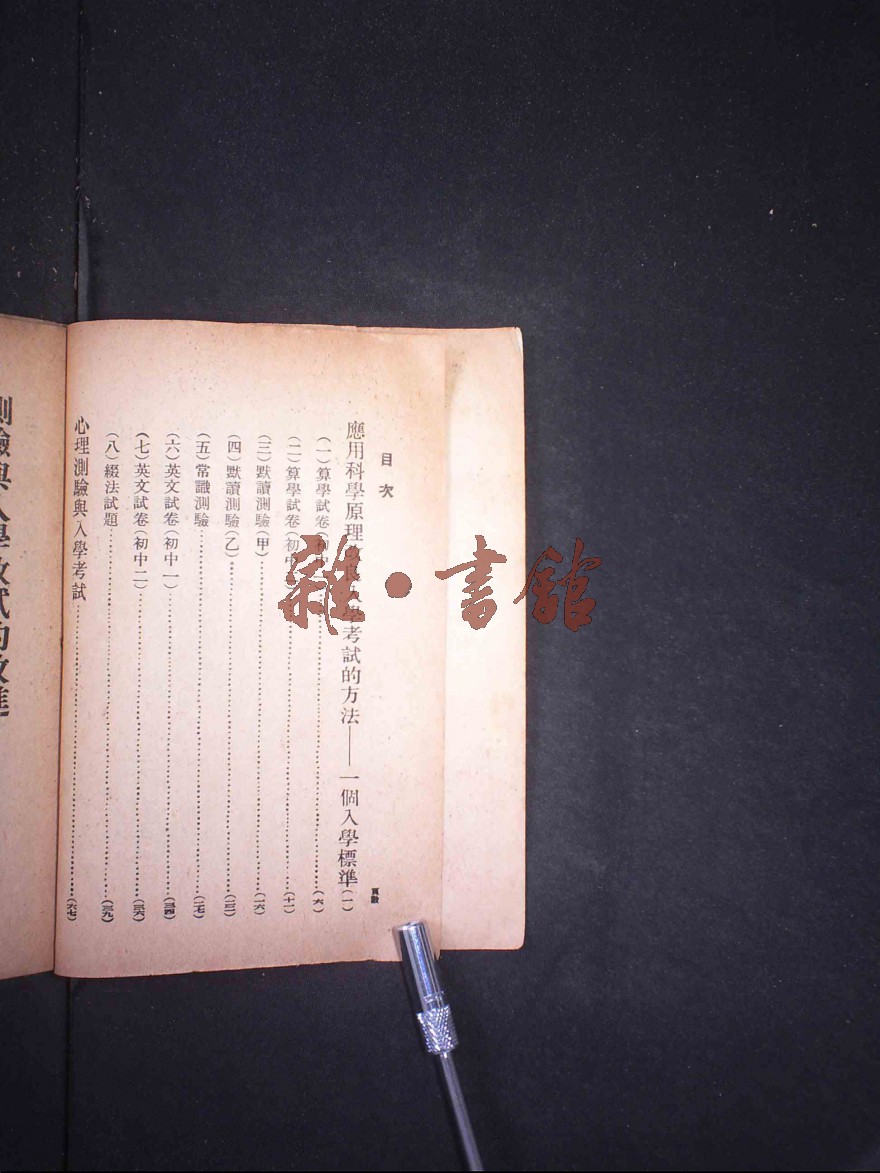 目次
頁數
應用科學原理改良入學考試的方法——一個入學標準(一)
(一)算學試卷(初中一)……(六)
(二)算學試卷(初中二)……(十一)
(三)默讀測驗(甲)……(一六)
(四)默讀測驗(乙)……(二三)
(五)常識測驗……(二七)
(六)英文試卷(初中一)……(三四)
(七)英文試卷(初中二)……(三六)
(八)綴法試題……(三九)
心理測驗與入學考試……(六七)
測驗與入學考試的改進
雜·書館